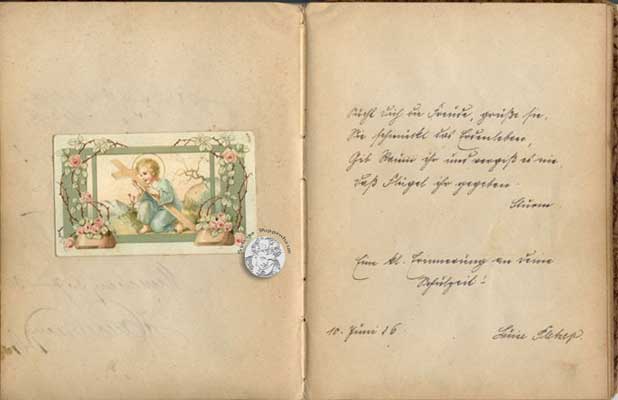 Sucht dich die Freude, grüße sie,
Sie schmückt das Erdenleben,
Gib Raum ihr und vergiß es nie,
Daß Flügel ihr gegeben.
Sturm
Eine kl. Erinnerung an deine
Schulzeit!
10. Juni 16